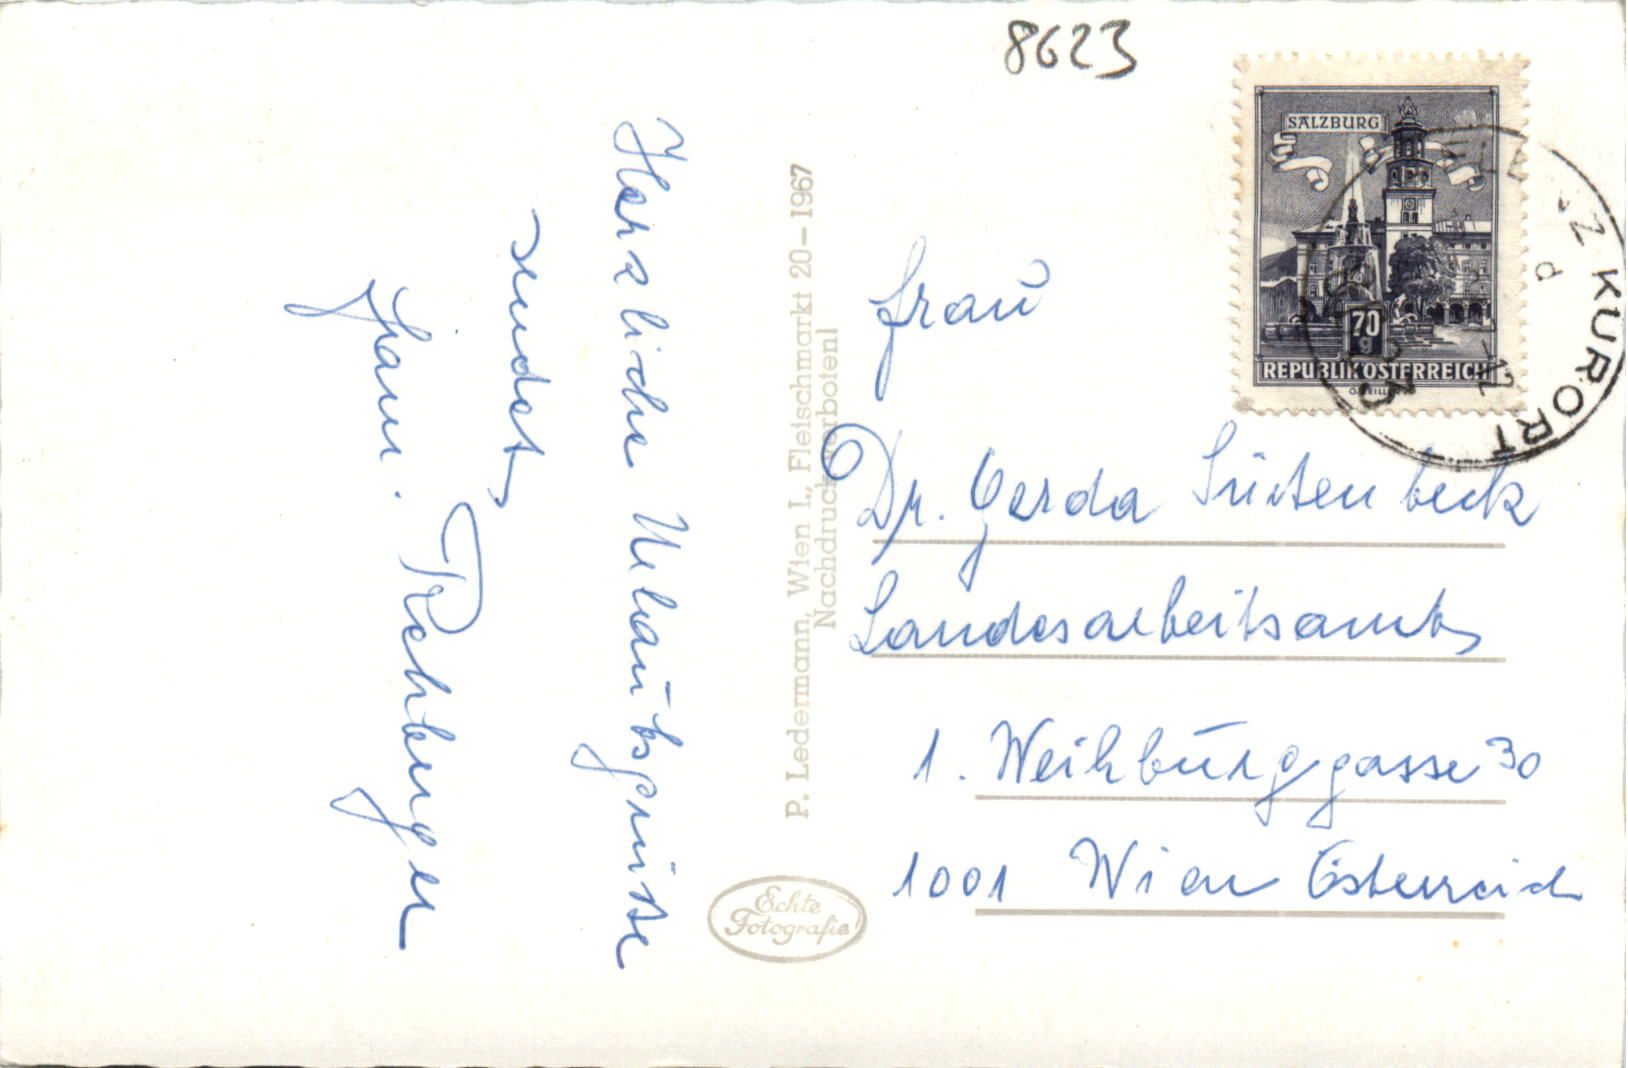 8623
SALZBURG
70
g
REPUBLIK ÖSTERREICH
KURORT
Herzliche Urlaubsgrüße
sendet
Fam. Rehberger
P. Ledermann, Wien I., Fleischmarkt 20–1967
Nachdruck verboten!
Echte
Fotografie
Frau
Dr. Gerda
Landesarbeitsamt
1. Weihburggasse 30
1001 Wien Österreich